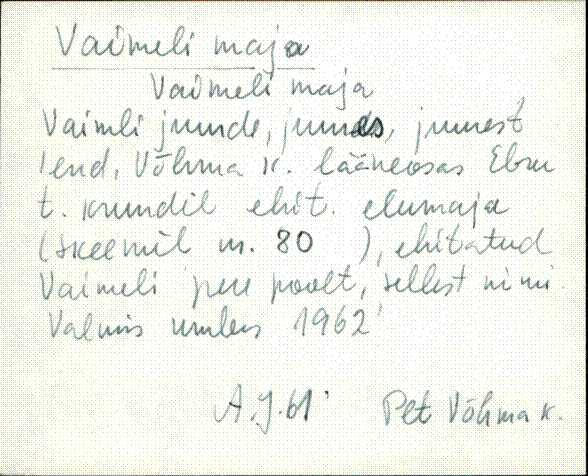 Vaimeli maja
Vaimeli maja
Vaimli juurde, juures, juurest
lend, Võhma k. lääneosas Ebru
t. krundil ehit. elumaja
(skeemil nr. 80 ), ehitatud
Vaimeli pere poolt, sellest nimi.
Valmis umbes 1962
A.J. 61 Pet Võhma k.